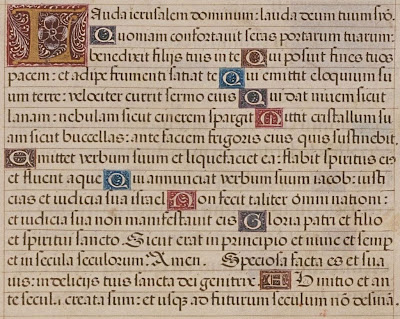 Lauda ierusalem dominum: lauda deum tuum syō.
Quoniam confortauit seras portarum tuarum:
benedixit filijs tuis in te. Qui posuit fines tuos
pacem: et adipe frumenti satiat te Qui emittit eloquium su
um terre: velociter currit sermo eius Qui dat niuem sicut
lanam: nebulam sicut cinerem spargit Mittit cristallum su
um sicut buccellas: ante faciem frigoris eius quis sustinebit.
Emittet verbum suum et liquefaciet ea: flabit spiritus eis
et fluent aque Qui annunciat verbum suum iacob: iusti
cias et iudicia sua israel Non fecit taliter omni nationi:
et iudicia sua non manifestauit eis Gloria patri et filio
et spiritui sancto. Sicut erat in principio et nunc et semp
et in secula seculorum: Amen. Speciosa facta es et sua
uis: in delicijs tuis sancta dei genitrix. Ab initio et an
te secula creata sum: et usq; ad futurum seculum nō desinā.